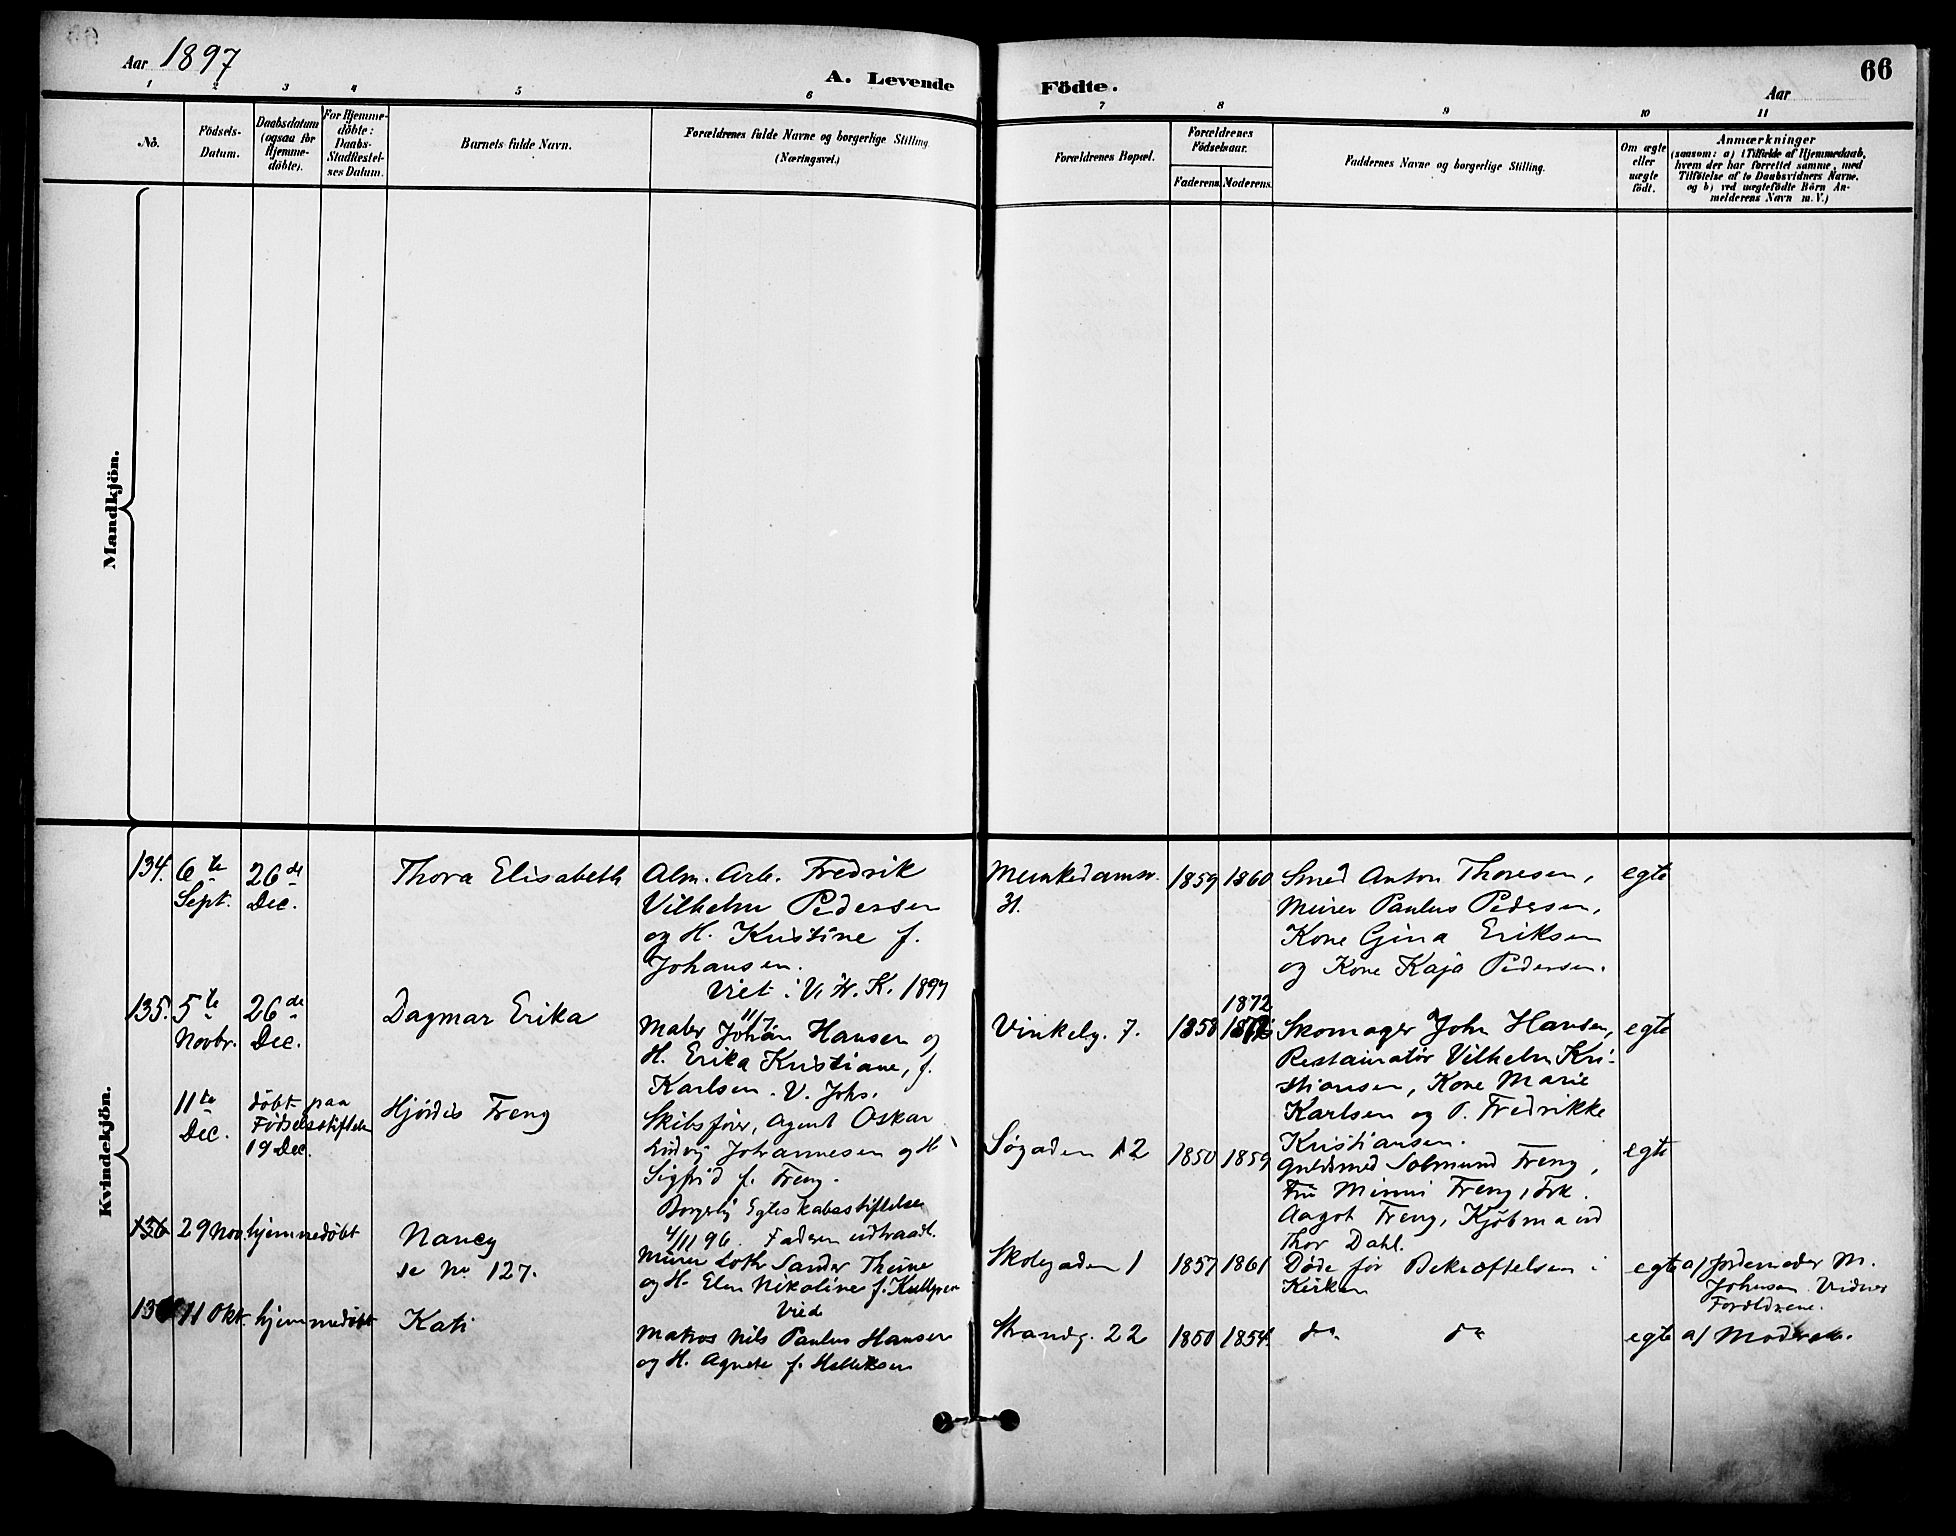 Aar 1897
A. Levende Födte.
66
Aar
1 2 3 4 5 6 7 8 9 10 11
No.
Födsels-
Datum.
Daabsdatum
(ogsaa for
Hjemme-
döbte).
For Hjemme-
döbte:
Daabs-
Stadfæstel-
ses Datum.
Barnets fulde Navn.
Forældrenes fulde Navne og borgerlige Stilling
(Næringsvei.)
Forældrenes Bopæl.
Forældrenes
Födselsaar.
Faderens. Moderens.
Faddernes Navne og borgerlige Stilling.
Om ægte
eller
uægte
födt.
Anmærkninger
(saasom: a) i Tilfælde af Hjemmedaab,
hvem der har forrettet samme, med
Tilföielse af to Daabsvidners Navne.
og b) ved uægtefödte Börn An-
melderens Navn m. V.)
Mandkjön.
Kvindekjön.
134.
6te
Sept.
26de
Dec.
Thora Elisabeth
Alm. Arb. Fredrik
Vilhelm Pedersen
og H. Kristine f.
Johansen.
Viet i V. Fr. K. 1897
11/7
Munkedamsv.
31.
1859
1860
Smed Anton Thoresen,
Murer Paulus Pedersen,
Kone Gina Eriksen
og Kone Kaja Pedersen.
egte
135.
5te
Novbr.
26de
Dec.
Dagmar Erika
Maler Johan Hansen og
H. Erika Kristiane, f.
Karlsen. V. Johs.
Vinkelg. 7.
1858
1872
Skomager John Hansen,
Restauratør Vilhelm Kri-
stiansen, Kone Marie
Karlsen og P. Fredrikke
Kristiansen.
egte
11te
Dec.
døbt paa
Fødselsstiftelsen
19 Dec.
Hjørdis Freng
Skibsfører, Agent Oskar
Ludvig Johannesen og H
Sigfrid f. Freng.
Borgerlig Egteskabsstiftelse
4/11 96. Faderen udtraadt.
Søgaden 12
1850
1859
Guldsmed Solmund Freng,
Fru Minni Freng, Frk.
Aagot Freng, Kjøbmand
Thor Dahl.
egte
136
29 Nov
hjemmedøbt
Nancy
se No 127.
Murer Loth Sander Thune
og H. Elen Nikoline f.
Vied
Skolegaden 1
1857
1861
Døde før Bekræftelsen i
Kirken
egte
a/ Jordemoder M.
Johnsen. Vidner
Forældrene.
11 Okt.
hjemmedøbt
Kati
Matros Nils Paulus Hansen
og H. Agnete f.
Strandg. 22
1850
1854
do do
egte
a/ Moderen.